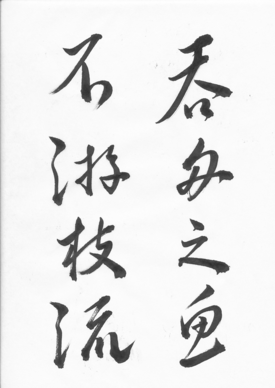 吞舟之魚
不游枝流